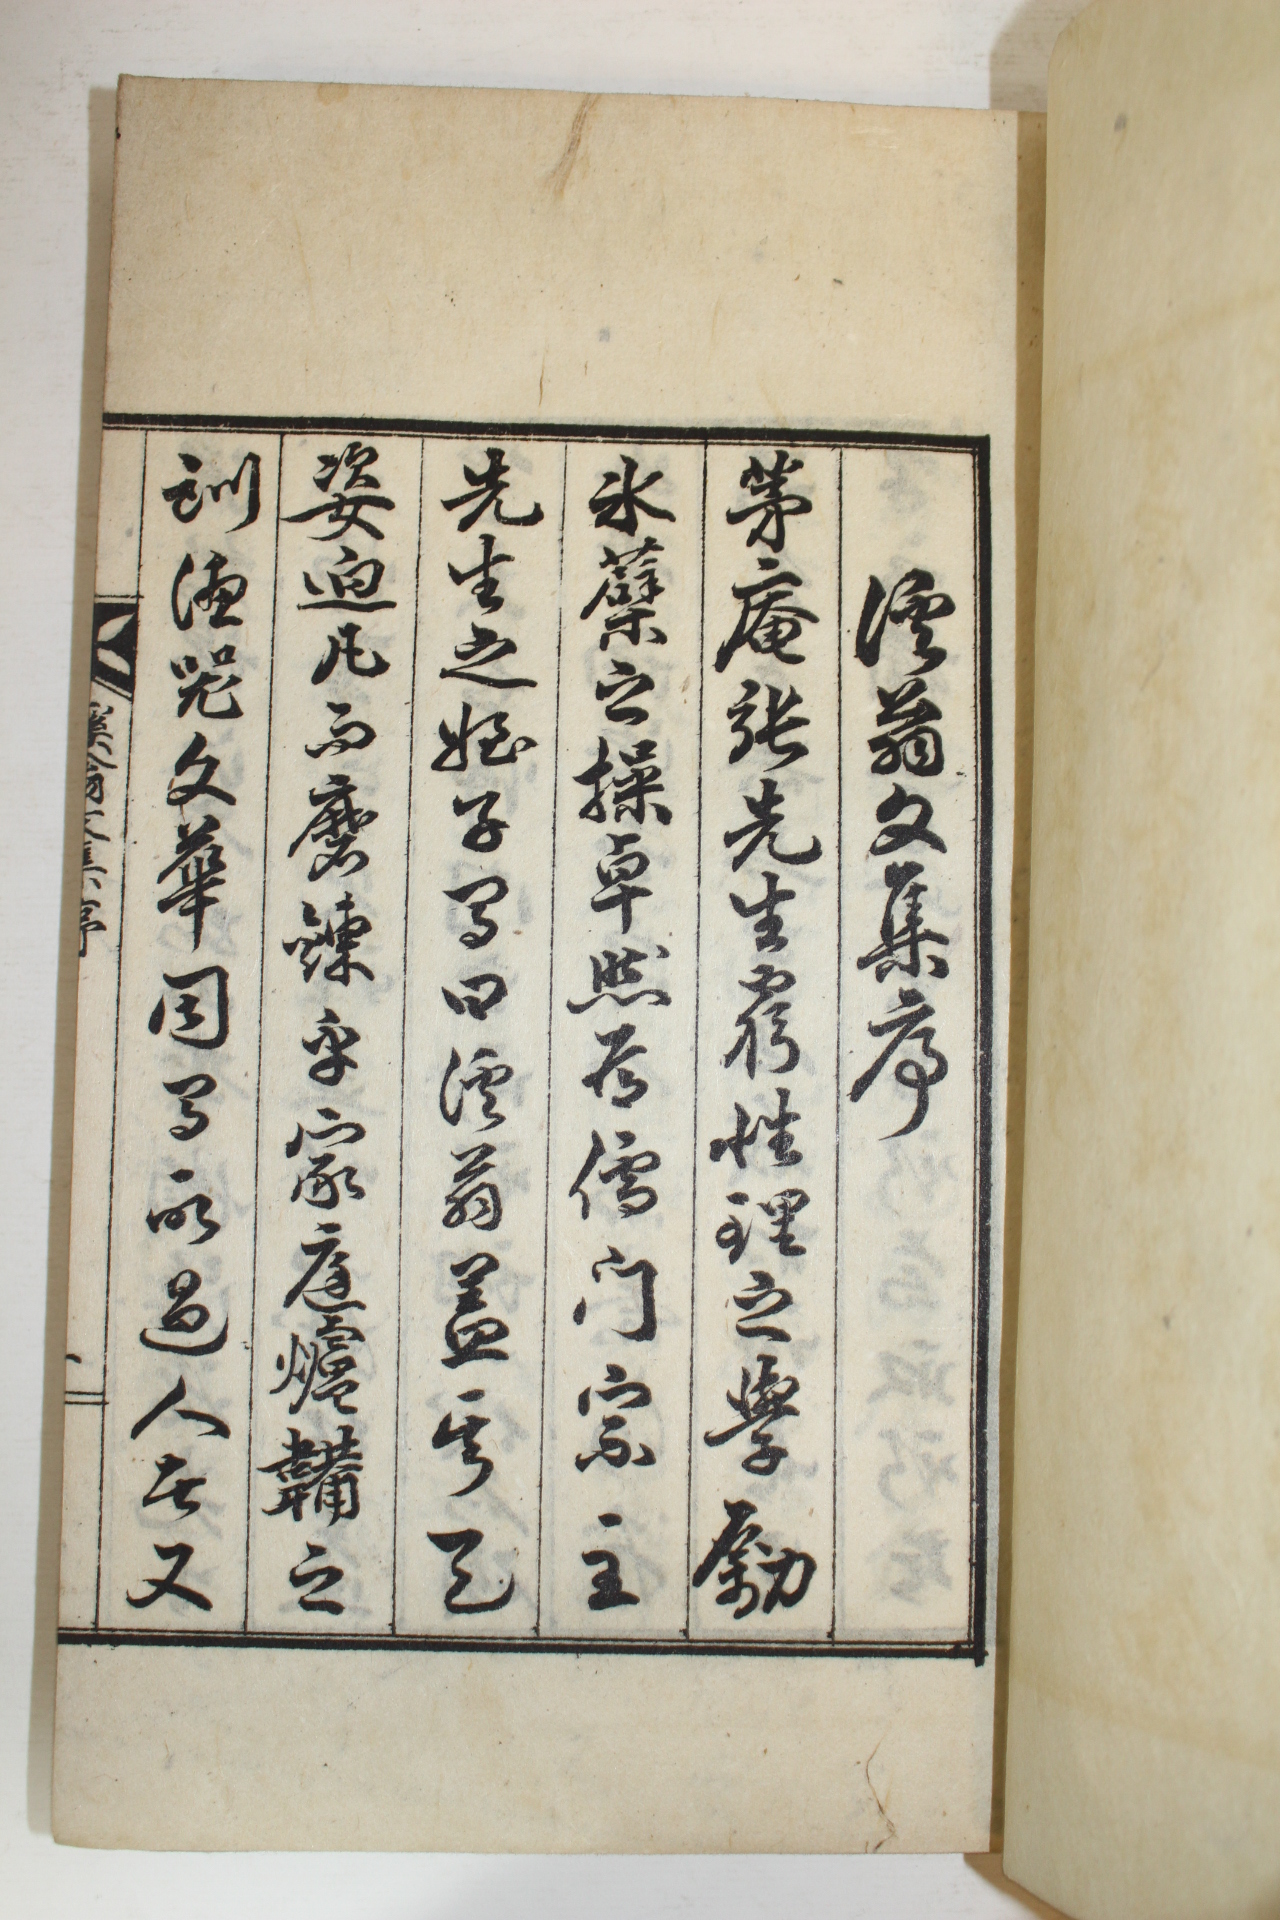 溪翁文集序
茅庵張先生窮性理之學勵
氷蘗之操卓然爲儒門宗主
先生之姪子有曰溪翁蓋其天
姿迥凡而磨鍊乎家庭爐鞴之
訓德器文華固有所過人者又
溪翁文集序
一